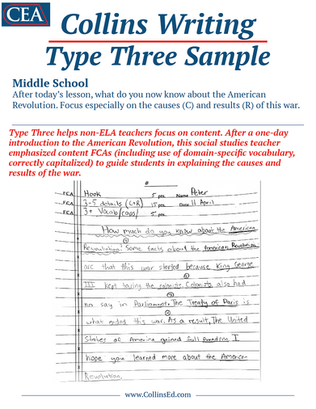 CEA
Collins Writing
Type Three Sample
Middle School
After today's lesson, what do you now know about the American
Revolution. Focus especially on the causes (C) and results (R) of this war.
Type Three helps non-ELA teachers focus on content. After a one-day
introduction to the American Revolution, this social studies teacher
emphasized content FCAs (including use of domain-specific vocabulary,
correctly capitalized) to guide students in explaining the causes and
results of the war.
#
FCA Hook 5 pts Name Peter
FCA 3-5 (C+R) 15 pts Date 11 April
FCA 3+ Vocab/caps 5 pts
How much do you know about the American
Revolution? Some facts about the American Revolution
are that this war started because King George
III kept taxing the colonists. also had
no say in Parliament. The Treaty of Paris is
what ended this war. As a result, The United
States of America gained full freedom. I
hope you learned more about the American
Revolution.
www.CollinsEd.com